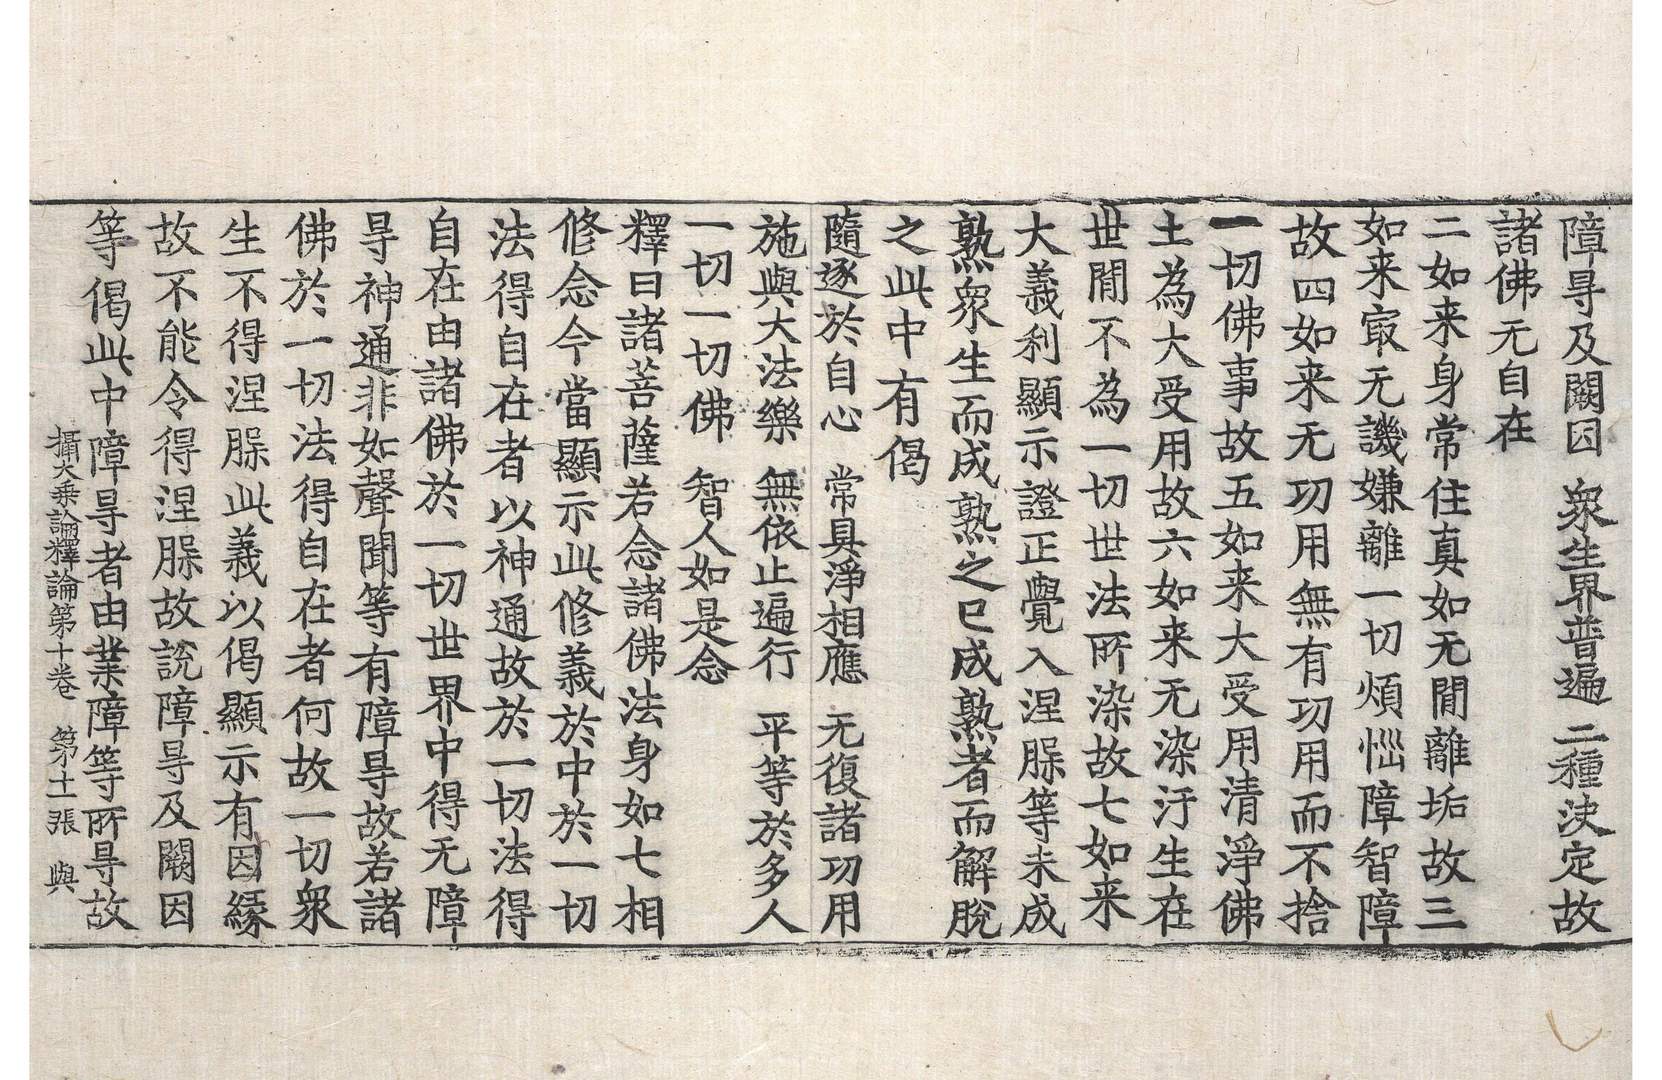 障㝵及闕因　衆生界普遍　二種決定故
諸佛无自在
二如来身常住真如无閒離垢故三
如来㝡无譏嫌離一切煩惱障智障
故四如来无功用無有功用而不捨
一切佛事故五如来大受用清淨佛
土為大受用故六如来无染汙生在
世閒不為一切世法所染故七如来
大義利顯示證正覺入涅槃等未成
熟衆生而成熟之已成熟者而解脫
之此中有偈
隨逐於自心　常具淨相應　无復諸功用
施與大法樂　無依止遍行　平等於多人
一切一切佛　智人如是念
釋曰諸菩薩若念諸佛法身如七相
修念今當顯示此修義於中於一切
法得自在者以神通故於一切法得
自在由諸佛於一切世界中得无障
㝵神通非如聲聞等有障㝵故若諸
佛於一切法得自在者何故一切衆
生不得涅槃此義以偈顯示有因緣
故不能令得涅槃故說障㝵及闕因
等偈此中障㝵者由業障等所㝵故
攝大乘論釋論第十卷　第十一張　與